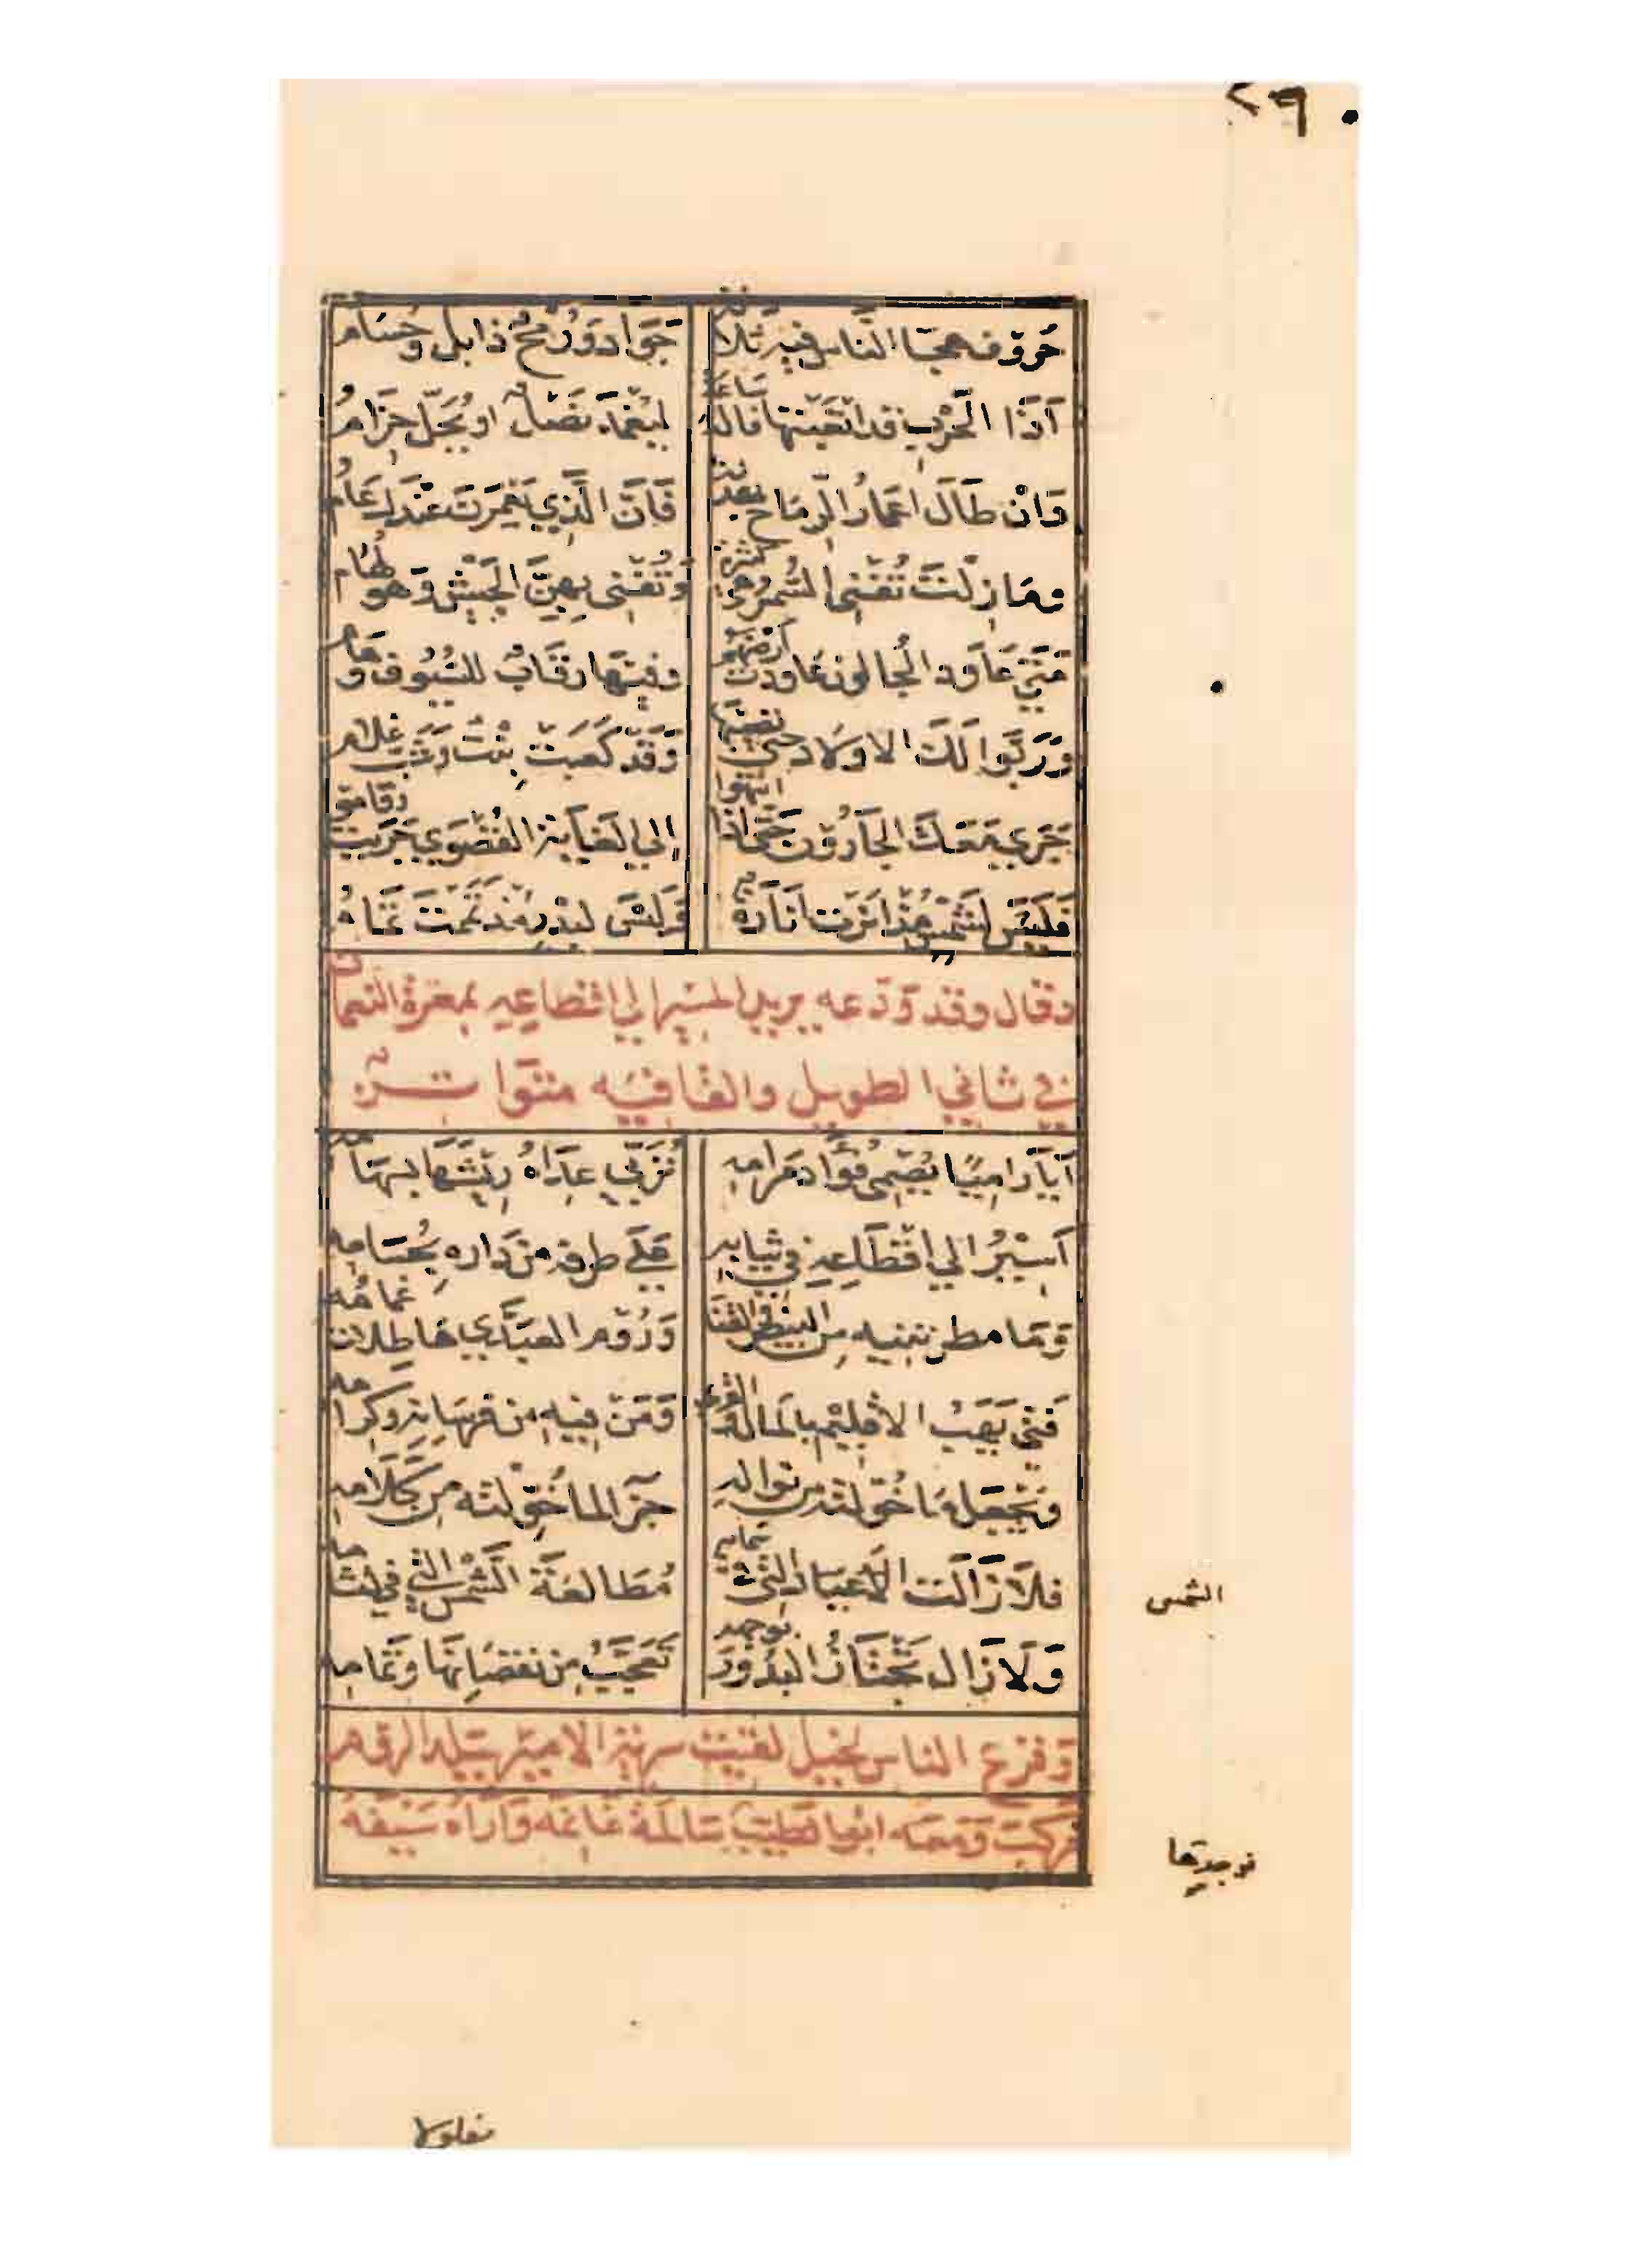 ٢٩٠
حُرُوف هجَا النَّاسِ فيه ثلاثة جَوَادٌ وَرُمْحٌ ذابلٌ وحُسَام
أذَا الحَرْبِ قد اتْعَبْتَهَا فالهُ سَاعَةً ليُغْمَدَ نَصْلٌ او يُحَلّ حِزَامُ
وَانْ طَالَ اعْمَارُ الرِّمَاحِ بهدنة فَاِنَّ الَّذِي يَعْمُرنَ عنْدَكَ عَامُ
ومَا زِلْتَ تُفْنِي السُّمْرَ وهي كثرة وَتُفْنِى بهِنَّ الجَيْشَ وَهو لُهَام
مَتَى عَاوَد الجَالونَ عَاودْتَ أرْضَهُم وفيهَا رِقَابٌ للسُّيُوفِ وَهَام
وَرَبَّوا لَكَ الاولَادَ حتى تُصِيْبَهَا وَقَدْ كَعَبَتْ بِنْتٌ وَشَبَّ غلام
جَرَى مَعَكَ الجَارُونَ حَتَّى اذا انتهوا إِلى الغَايَة القُصْوَى جَرَيْتَ وقَامُو
فَلَيْسَ لِشَمْسٍ مُذْ انَرْتَ انَارَةٌ وَلَيْسَ لبَدْرٍ مُذْ تَمَمْتَ تَمَامُ
وقال وقد وَدَّعه يريد المسير الي اقطاعه بمعرة النعمان
في ثاني الطويل والقافيه متواتر
أيَا رَامِيًا يُصْمِي فُؤَادَ مَرَامِهِ تُرَبِّي عِدَاهُ رِيْشَهَا لسِهَامه
أسِيْرُ الي اقْطَاعِهِ في ثيَابِهِ عَلَى طرفه من دَارِه بحُسَامِهِ
وَمَا مطرتنيه مِن البِيْضِ والقَنَا وَرُومِ العبدَّي هَاطِلَات غمامه
فَتًى يَهَبُ الاقْلِيْمِ بالمَالِ والقُرى وَمَنْ فِيهِ من فرسَانِه وكِرَامه
وَيَجْعَل مَا خُوّلته من نوالهِ جزَا لما خُوِّلته مِن كَلَامِهِ
فلَا زَالَت الشَّمْسُ التي في سمائه مُطَالعَة الشَّمْسِ الَّتِي في لثامه
وَلَا زَال تَجْتَازُ البدُورُ بوجهه تَعَجَّبُ مِن نقصَانِهَا وتَمَامِهِ
وَفزع الناس لخيل لقيت سرية الامير ببلد الروم
فركب وَمعه ابو الطيب
الشمس
فوجدتها
مغلولا